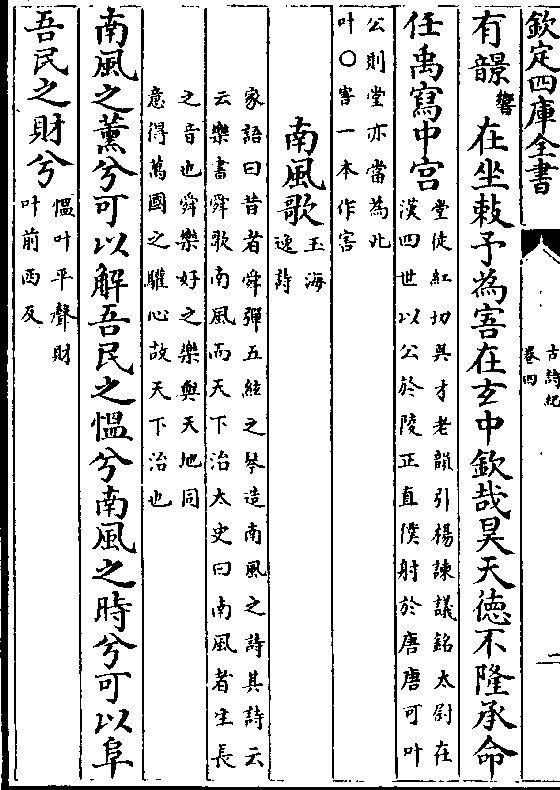 欽定四庫全書
古詩紀
卷四
二
有韺
響
在坐敕予為害在玄中欽哉昊天徳不隆承命
任禹寫中宫
堂徒紅切吳才老韻引楊諫議銘太尉在
漢四世以公於陵正直僕射於唐唐可叶
公則堂亦當為此
叶○害一本作害
南風歌
玉海
逸詩
家語曰昔者舜彈五絃之琴造南風之詩其詩云
云樂書舜歌南風而天下治太史曰南風者生長
之音也舜樂好之樂與天地同
意得萬國之驩心故天下治也
南風之薫兮可以解吾民之愠兮南風之時兮可以阜
吾民之財兮
愠叶平聲財
叶前西反